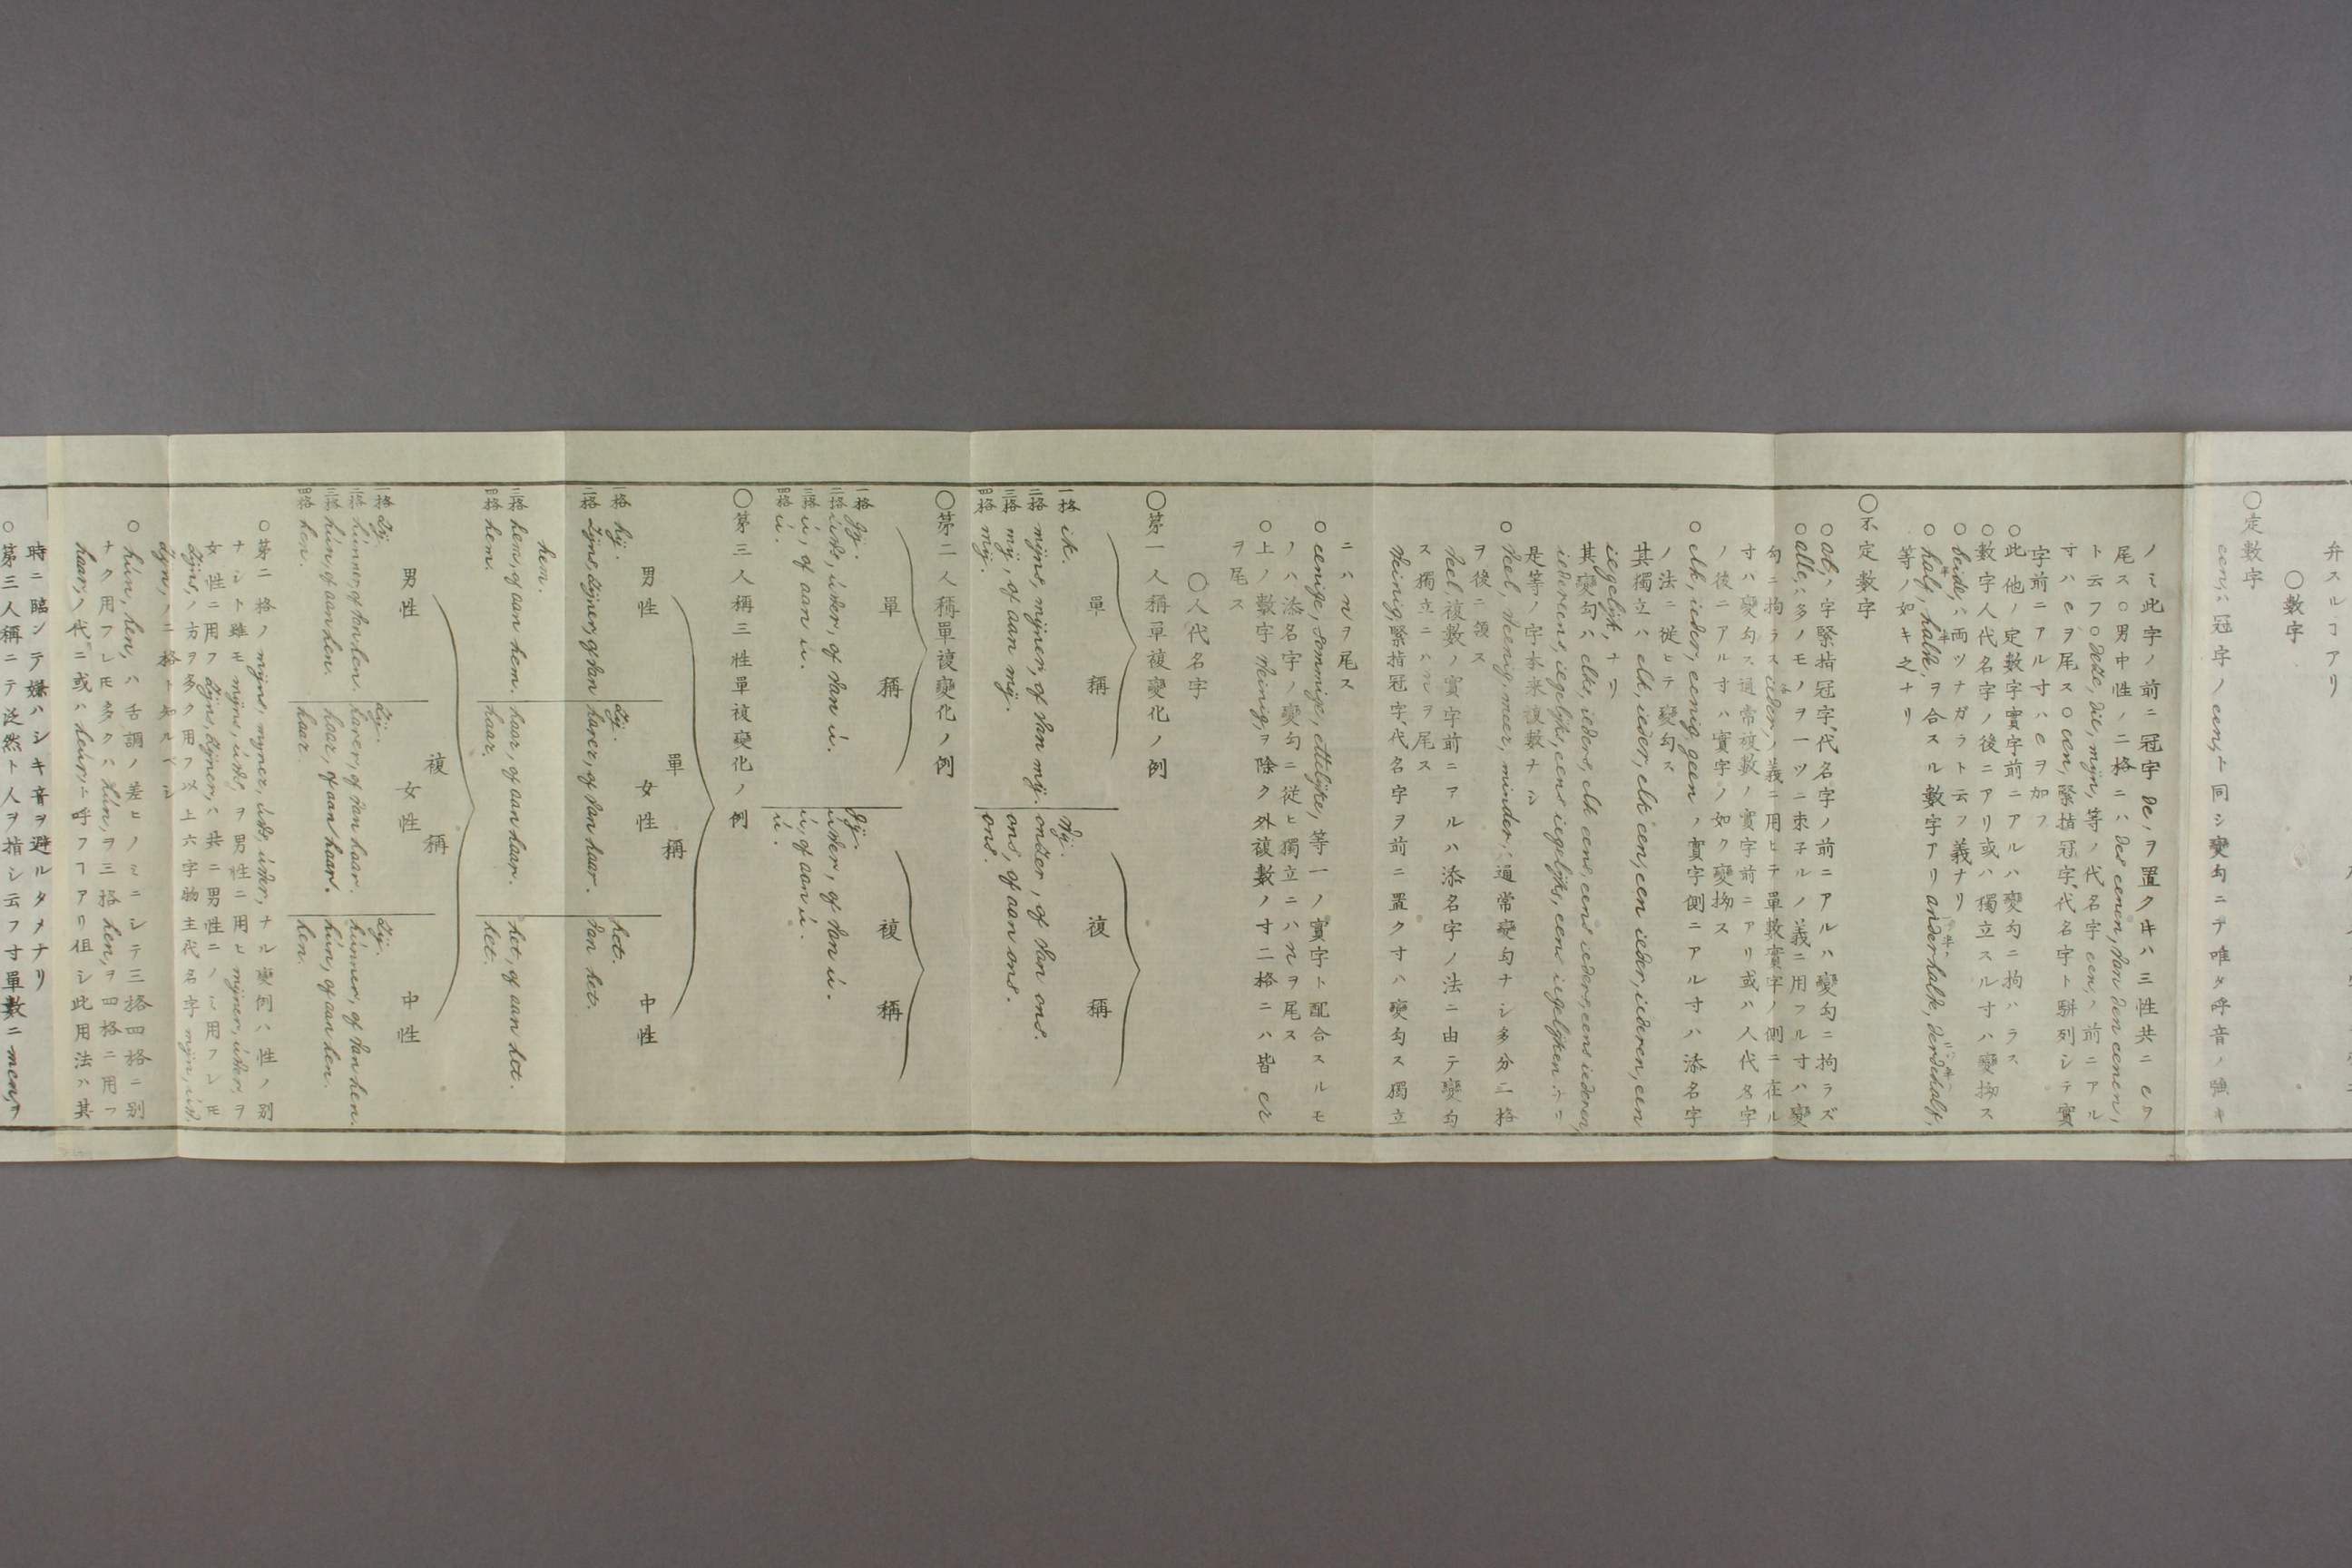 弁スルヿアリ
〇数字
〇定數字
een,ハ冠字ノeen,ト同シ變勾ニテ唯タ呼音ノ強キ
ノミ此字ノ前ニ冠字 de,ヲ置ク𪜈ハ三性共ニeヲ
尾ス〇男中性ノ二格ニハ des eenen, van den eenen,
ト云フ〇deze, die, mijn, 等ノ代名字 een,ノ前ニアル
寸ハeヲ尾ス〇een,緊指冠字代名字ト駢列シテ實
字前ニアル寸ハeヲ加フ
〇此他ノ定數字實字前ニアルハ變勾ニ拘ハラス
〇數字人代名字ノ後ニアリ或ハ獨立スル寸ハ變拗ス
〇beide,ハ両ツナガラト云フ義ナリ
〇half, halve,ヲ合スル數字アリ anderhalve, derdehalf,
等ノ如キ之ナリ
〇不定數字
〇al,ハ字緊指冠字代名字ノ前ニアルハ變勾ニ拘ラズ
〇alle,ハ多ノモノヲ一ツニ束子ルノ義ニ用フル寸ハ變
勾ニ拘ラス ieder,ノ義ニ用ヒテ單數實字ノ側ニ在ル
寸ハ變勾ス通常複數ノ實字前ニアリ或ハ人代名字
ノ後ニアル寸ハ實字ノ如ク變拗ス
〇elk, ieder, eenig, geen,ノ實字側ニアル寸ハ添名字
ノ法ニ從ヒテ變勾ス
其獨立ハ elk, ieder, elk een, een ieder, iederen, een
iegelijk,ナリ
其變勾ハ elks, ieders, elk eens, eens ieders, eens iederen,
iedereens, iegelijks, eens iegelijks, eens iegelijken ナニ
是等ノ字本来複數ナシ
〇veel, weenig, meer, minder,ハ通常變勾ナシ多分二格
ヲ後ニ領ス
veel,複數ノ實字前ニアルハ添名字ノ法ニ由テ變勾
ス獨立ニハnヲ尾ス
weinig,緊指冠字代名字ヲ前ニ置ク寸ハ變勾ス獨立
ニハnヲ尾ス
〇eenige, sommige, ettelijke,等一ノ實字ト配合スルモ
ノハ添名字ノ變勾ニ從ヒ獨立ニハnヲ尾ス
〇上ノ數字 weinig,ヲ除ク外複數ノ寸二格ニハ皆er
ヲ尾ス
〇人代名字
〇第一人稱單複變化ノ例
單稱 複稱
一格 ik. wij.
二格 mijns, mijner, of van mij. onzer, of van ons.
三格 mij, of aan mij. ons, of aan ons.
四格 mij. ons.
〇第二人稱單複變化ノ例
單稱 複稱
一格 gij. gij.
二格 uws, uwer, of van ú. uwer, of van ú.
三格 ú, of aan ú. ú, of aan ú.
四格 ú. ú.
〇第三人稱三性單複變化ノ例
單稱
男性 女性 中性
一格 hij. zij. het.
二格 zijns, zijner, of van hem. harer, of van haar. van het.
三格 hem, of aan hem. haar, of aan haar. het, of aan het.
四格 hem. haar. het.
複稱
男性 女性 中性
一格 zij. zij. zij.
二格 húnner, of van hen. harer, of van haar. húnner, of van hen.
三格 hún, of aan hen. haar, of aan haar. hún, of aan hen.
四格 hen. haar. hen.
〇第二格ノ mijns, mijner, úws, úwer,ナル變例ハ性ノ別
ナシト雖モ mijns, úws,ヲ男性ニ用ヒ mijner, úwer,ヲ
女性ニ用フ zijns, zijner,ハ共ニ男性ニノミ用フレモ
zijns,ノ方ヲ多ク用フ以上六字物主代名字 mijn, úw,
zijn,ノ二格ト知ルベシ
〇hún, hen,ハ舌調ノ差ヒノミニシテ三格四格ニ別
ナク用フレモ多クハ hún,ヲ三格 hen,ヲ四格ニ用フ
haar,ノ代ニ或ハ heúr,ト呼フヿアリ但シ此用法ハ其
時ニ臨ンテ嫌ハシキ音ヲ避ルタメナリ
〇第三人稱ニテ泛然ト人ヲ指シ云フ寸單數ニ men,ヲ